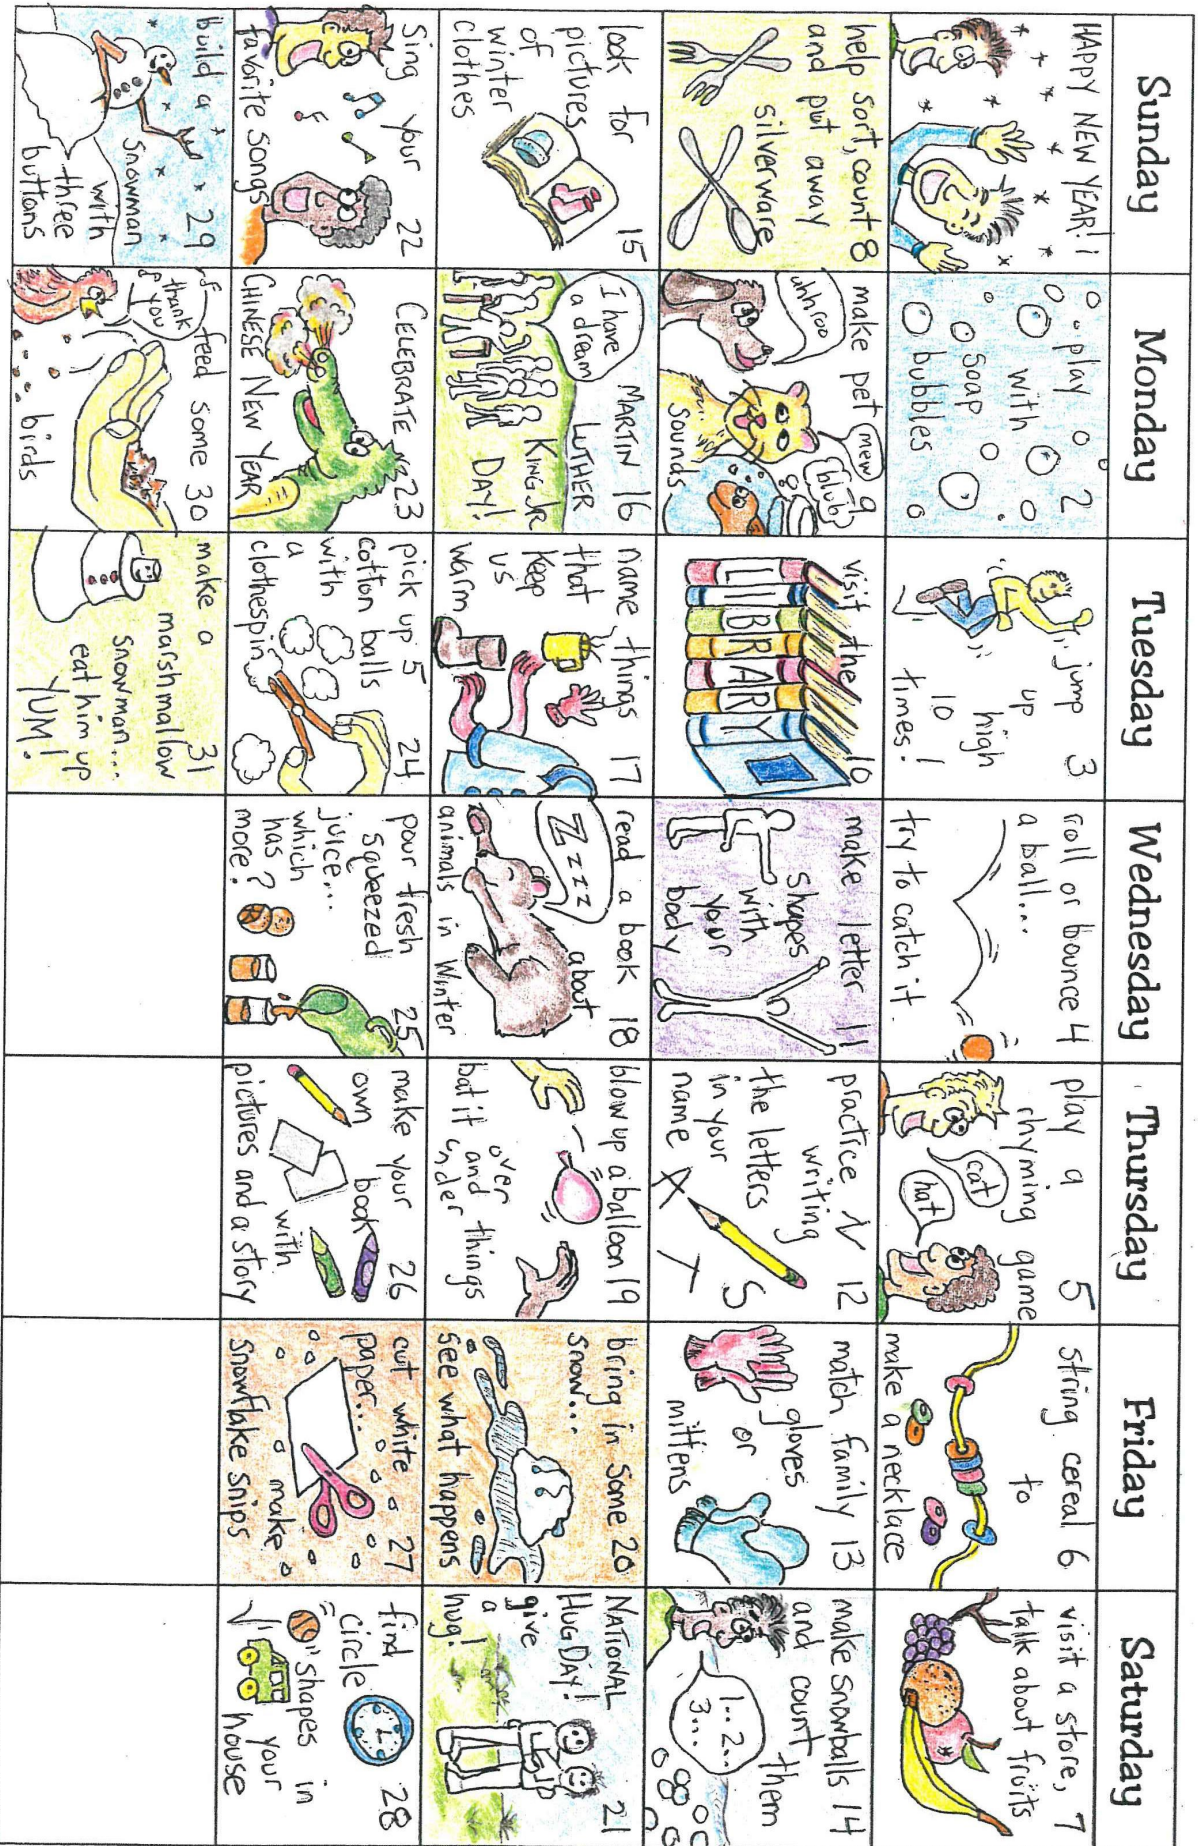 Sunday
Monday
Tuesday
Wednesday
Thursday
Friday
Saturday
HAPPY NEW YEAR! 1
play 2
with
soap
bubbles
jump 3
up
high
10
times!
roll or bounce 4
a ball...
try to catch it.
play a 5
rhyming game
cat
hat
string cereal 6
to
make a necklace
visit a store, 7
talk about fruits
help sort, count 8
and put away
silverware
make pet 9
sounds
uhhroo
mew
blub
visit the 10
LIBRARY
make letter 11
shapes
with
your
body
practice 12
writing
the letters
in your
name
N
S
A
T
match family 13
gloves
or
mittens
make snowballs 14
and count them
1..2..
3...
look for 15
pictures
of
winter
clothes
I have
a dream
MARTIN 16
LUTHER
KING JR
DAY!
name things 17
that
keep
us
warm
read a book 18
about
animals in Winter
Zzzz
blow up a balloon 19
bat it over and under things
bring in some 20
snow...
see what happens
NATIONAL 21
HUG DAY!
give
a
hug!
Sing your 22
favorite songs
CELEBRATE 23
CHINESE NEW YEAR
pick up 5 24
cotton balls
with
a
clothespin
pour fresh 25
squeezed
juice...
which
has
more?
make your 26
own book
with
pictures and a story
cut white 27
paper...
make
snowflake snips
find 28
circle
shapes in
your
house
build a 29
snowman
with
three
buttons
feed some 30
birds
thank
you
make a 31
marshmallow
snowman...
eat him up
YUM!